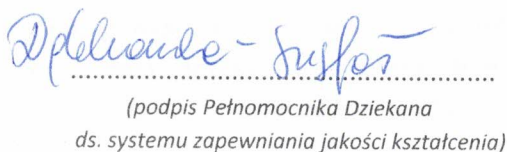 (podpis Pełnomocnika Dziekana
ds. systemu zapewniania jakości kształcenia)